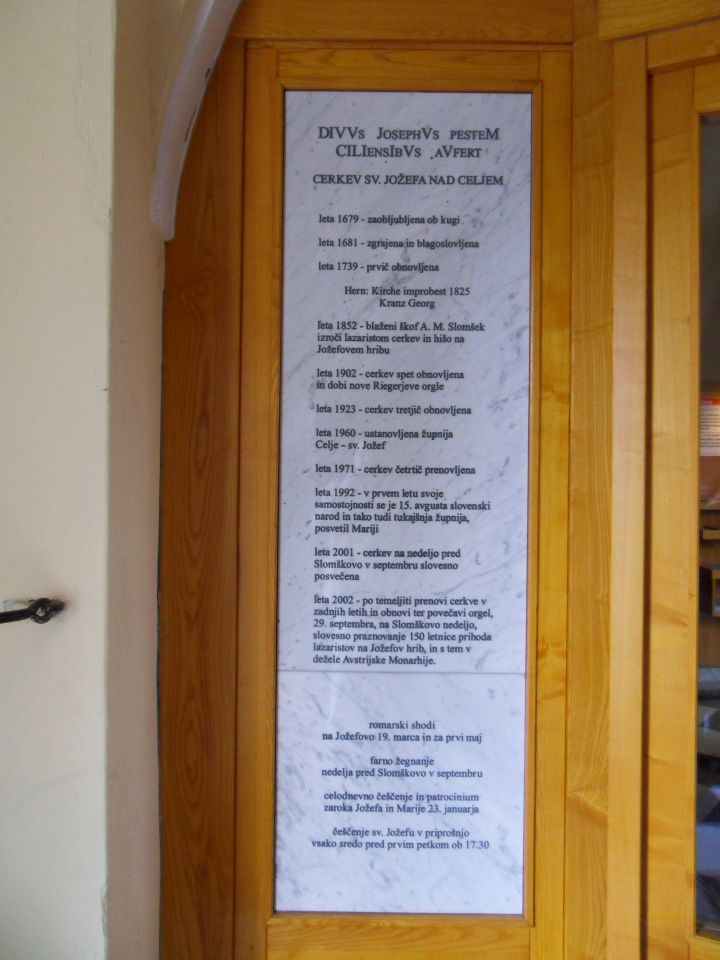 DIVVs JosephVs pesteM
CILIensIbVs aVfert
CERKEV SV. JOŽEFA NAD CELJEM
leta 1679 - zaobljubljena ob kugi
leta 1681 - zgrajena in blagoslovljena
leta 1739 - prvič obnovljena
Hern: Kirche improbest 1825
Kranz Georg
leta 1852 - blaženi škof A. M. Slomšek
izroči lazaristom cerkev in hišo na
Jožefovem hribu
leta 1902 - cerkev spet obnovljena
in dobi nove Riegerjeve orgle
leta 1923 - cerkev tretjič obnovljena
leta 1960 - ustanovljena župnija
Celje – sv. Jožef
leta 1971 - cerkev četrtič prenovljena
leta 1992 - v prvem letu svoje
samostojnosti se je 15. avgusta slovenski
narod in tako tudi tukajšnja župnija,
posvetil Mariji
leta 2001 - cerkev na nedeljo pred
Slomškovo v septembru slovesno
posvečena
leta 2002 - po temeljiti prenovi cerkve v
zadnjih letih in obnovi ter povečavi orgel,
29. septembra, na Slomškovo nedeljo,
slovesno praznovanje 150 letnice prihoda
lazaristov na Jožefov hrib, in s tem v
dežele Avstrijske Monarhije.
romarski shodi
na Jožefovo 19. marca in za prvi maj
farno žegnanje
nedelja pred Slomškovo v septembru
celodnevno češčenje in patrocinium
zaroka Jožefa in Marije 23. januarja
češčenje sv. Jožefu v priprošnjo
vsako sredo pred prvim petkom ob 17.30